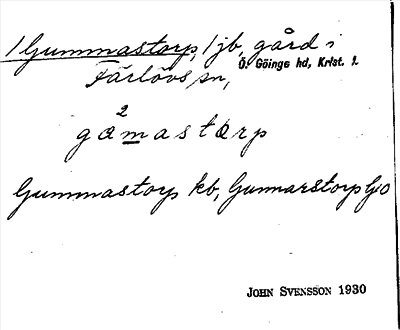 /Gummastorp,/jb, gård i
Färlövs sn, Ö. Göinge hd, Krist. l.
2
gæmastærp
Gummastorp kb, Gunnarstorp GO
JOHN SVENSSON 1930